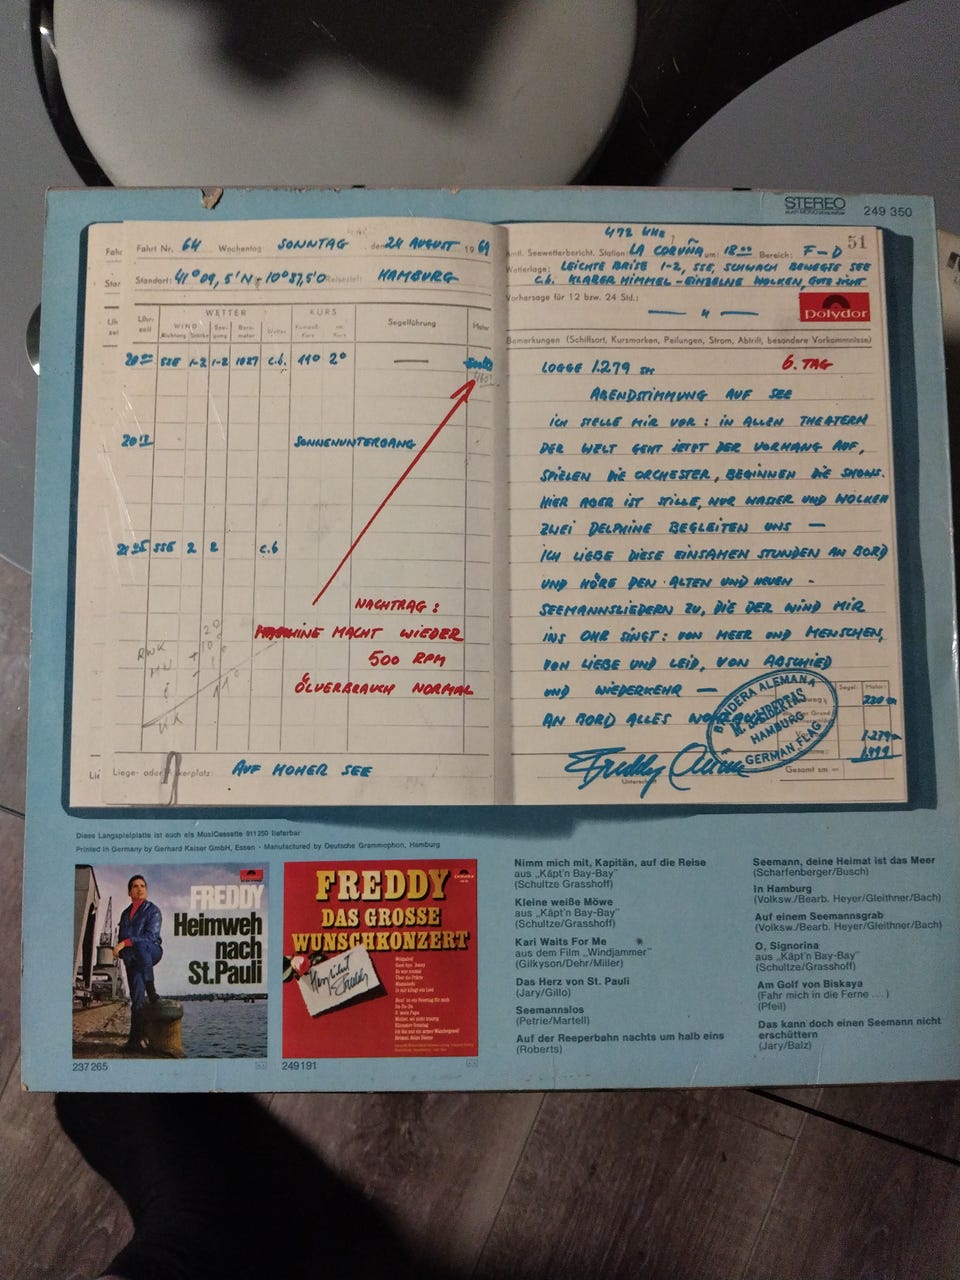 STEREO
auch MONO abspielbar
249 350
Fahrt Nr. 64 Wochentag: SONNTAG, den 24 AUGUST 1969
Standort: 41° 09,5' N - 10° 57,5' O Reiseziel: HAMBURG
WETTER
KURS
Uhr-
zeit
WIND
Richtung Stärke
See-
gang
Baro-
meter
Wetter
Segelführung
Motor
20 00 SSE 1-2 1-2 1027 c.b. 110 2°
SONNENUNTERGANG
SSE 2 2 c.b
NACHTRAG:
MASCHINE MACHT WIEDER
500 RPM
ÖLVERBRAUCH NORMAL
AUF HOHER SEE
472 KHz,
51
Amtl. Seewetterbericht. Station: LA CORUÑA um: 18 00 Bereich: F-D
Wetterlage: LEICHTE BRISE 1-2, SSE, SCHWACH BEWEGTE SEE
c.b. KLARER HIMMEL - EINZELNE WOLKEN, GUTE SICHT
Vorhersage für 12 bzw. 24 Std.:
polydor
Bemerkungen (Schiffsort, Kursmarken, Peilungen, Strom, Abtrift, besondere Vorkommnisse)
LOGGE 1.279 sm
6. TAG
ABENDSTIMMUNG AUF SEE
ICH STELLE MIR VOR: IN ALLEN THEATERN
DER WELT GEHT JETZT DER VORHANG AUF,
SPIELEN DIE ORCHESTER, BEGINNEN DIE SHOWS.
HIER ABER IST STILLE, NUR WASSER UND WOLKEN
ZWEI DELPHINE BEGLEITEN UNS —
ICH LIEBE DIESE EINSAMEN STUNDEN AN BORD
UND HÖRE DEN ALTEN UND NEUEN -
SEEMANNSLIEDERN ZU, DIE DER WIND MIR
INS OHR SINGT: VON MEER UND MENSCHEN,
VON LIEBE UND LEID, VON ABSCHIED
UND WIEDERKEHR —
AN BORD ALLES
BANDERA ALEMANA
LIBERTAS
HAMBURG
GERMAN FLAG
Segel:
Motor:
1.279
Gesamt sm
Freddy Quinn
Unterschrift
Diese Langspielplatte ist auch als MusiCassette 911 250 lieferbar
Printed in Germany by Gerhard Kaiser GmbH, Essen · Manufactured by Deutsche Grammophon, Hamburg
FREDDY
Heimweh
nach
St.Pauli
237 265
FREDDY
DAS GROSSE
WUNSCHKONZERT
Herzlichst
Freddy
249 191
Nimm mich mit, Kapitän, auf die Reise
aus „Käpt'n Bay-Bay"
(Schultze Grasshoff)
Kleine weiße Möwe
aus „Käpt'n Bay-Bay"
(Schultze/Grasshoff)
Kari Waits For Me
aus dem Film „Windjammer"
(Gilkyson/Dehr/Miller)
Das Herz von St. Pauli
(Jary/Gillo)
Seemannslos
(Petrie/Martell)
Auf der Reeperbahn nachts um halb eins
(Roberts)
Seemann, deine Heimat ist das Meer
(Scharfenberger/Busch)
In Hamburg
(Volksw./Bearb. Heyer/Gleithner/Bach)
Auf einem Seemannsgrab
(Volksw./Bearb. Heyer/Gleithner/Bach)
O, Signorina
aus „Käpt'n Bay-Bay"
(Schultze/Grasshoff)
Am Golf von Biskaya
(Fahr mich in die Ferne ...)
(Pfeil)
Das kann doch einen Seemann nicht
erschüttern
(Jary/Balz)